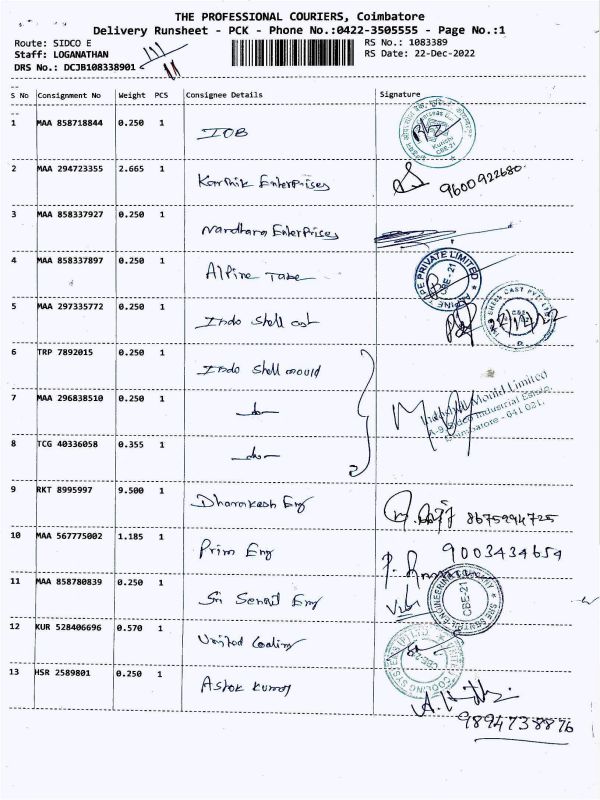 THE PROFESSIONAL COURIERS, Coimbatore
Delivery Runsheet - PCK - Phone No.:0422-3505555 - Page No.:1
Route: SIDCO E RS No.: 1083389
Staff: LOGANATHAN RS Date: 22-Dec-2022
DRS No.: DCJB108338901
S No Consignment No Weight PCS Consignee Details Signature
1 MAA 858718844 0.250 1 IOB
Kurichi
CBE-21
2 MAA 294723355 2.665 1 Karthik Enterprises 9600922680
3 MAA 858337927 0.250 1 Nardhara Enterprises
4 MAA 858337897 0.250 1 Alpine Tube
ALPINE TUBE PRIVATE LIMITED
CBE - 21
5 MAA 297335772 0.250 1 Indo Shell cast 22/12/22
INDO SHELL CAST PVT LTD
6 TRP 7892015 0.250 1 Indo Shell mould
7 MAA 296838510 0.250 1 -do-
Indoshell Mould Limited
A-9, Sidco Industrial Estate,
Coimbatore - 641 021.
8 TCG 40336058 0.355 1 -do-
9 RKT 8995997 9.500 1 Dharakesh Eng 8675994725
10 MAA 567775002 1.185 1 Prim Eng 9003434654
11 MAA 858780839 0.250 1 Sri Senthil Eng
SREE SENTHIL ENGINEERING COMPANY
CBE-21
12 KUR 528406696 0.570 1 United Cooling
UNITED COOLING SYSTEMS (P) LTD
CBE-21
13 HSR 2589801 0.250 1 Ashok Kumar
9894738876